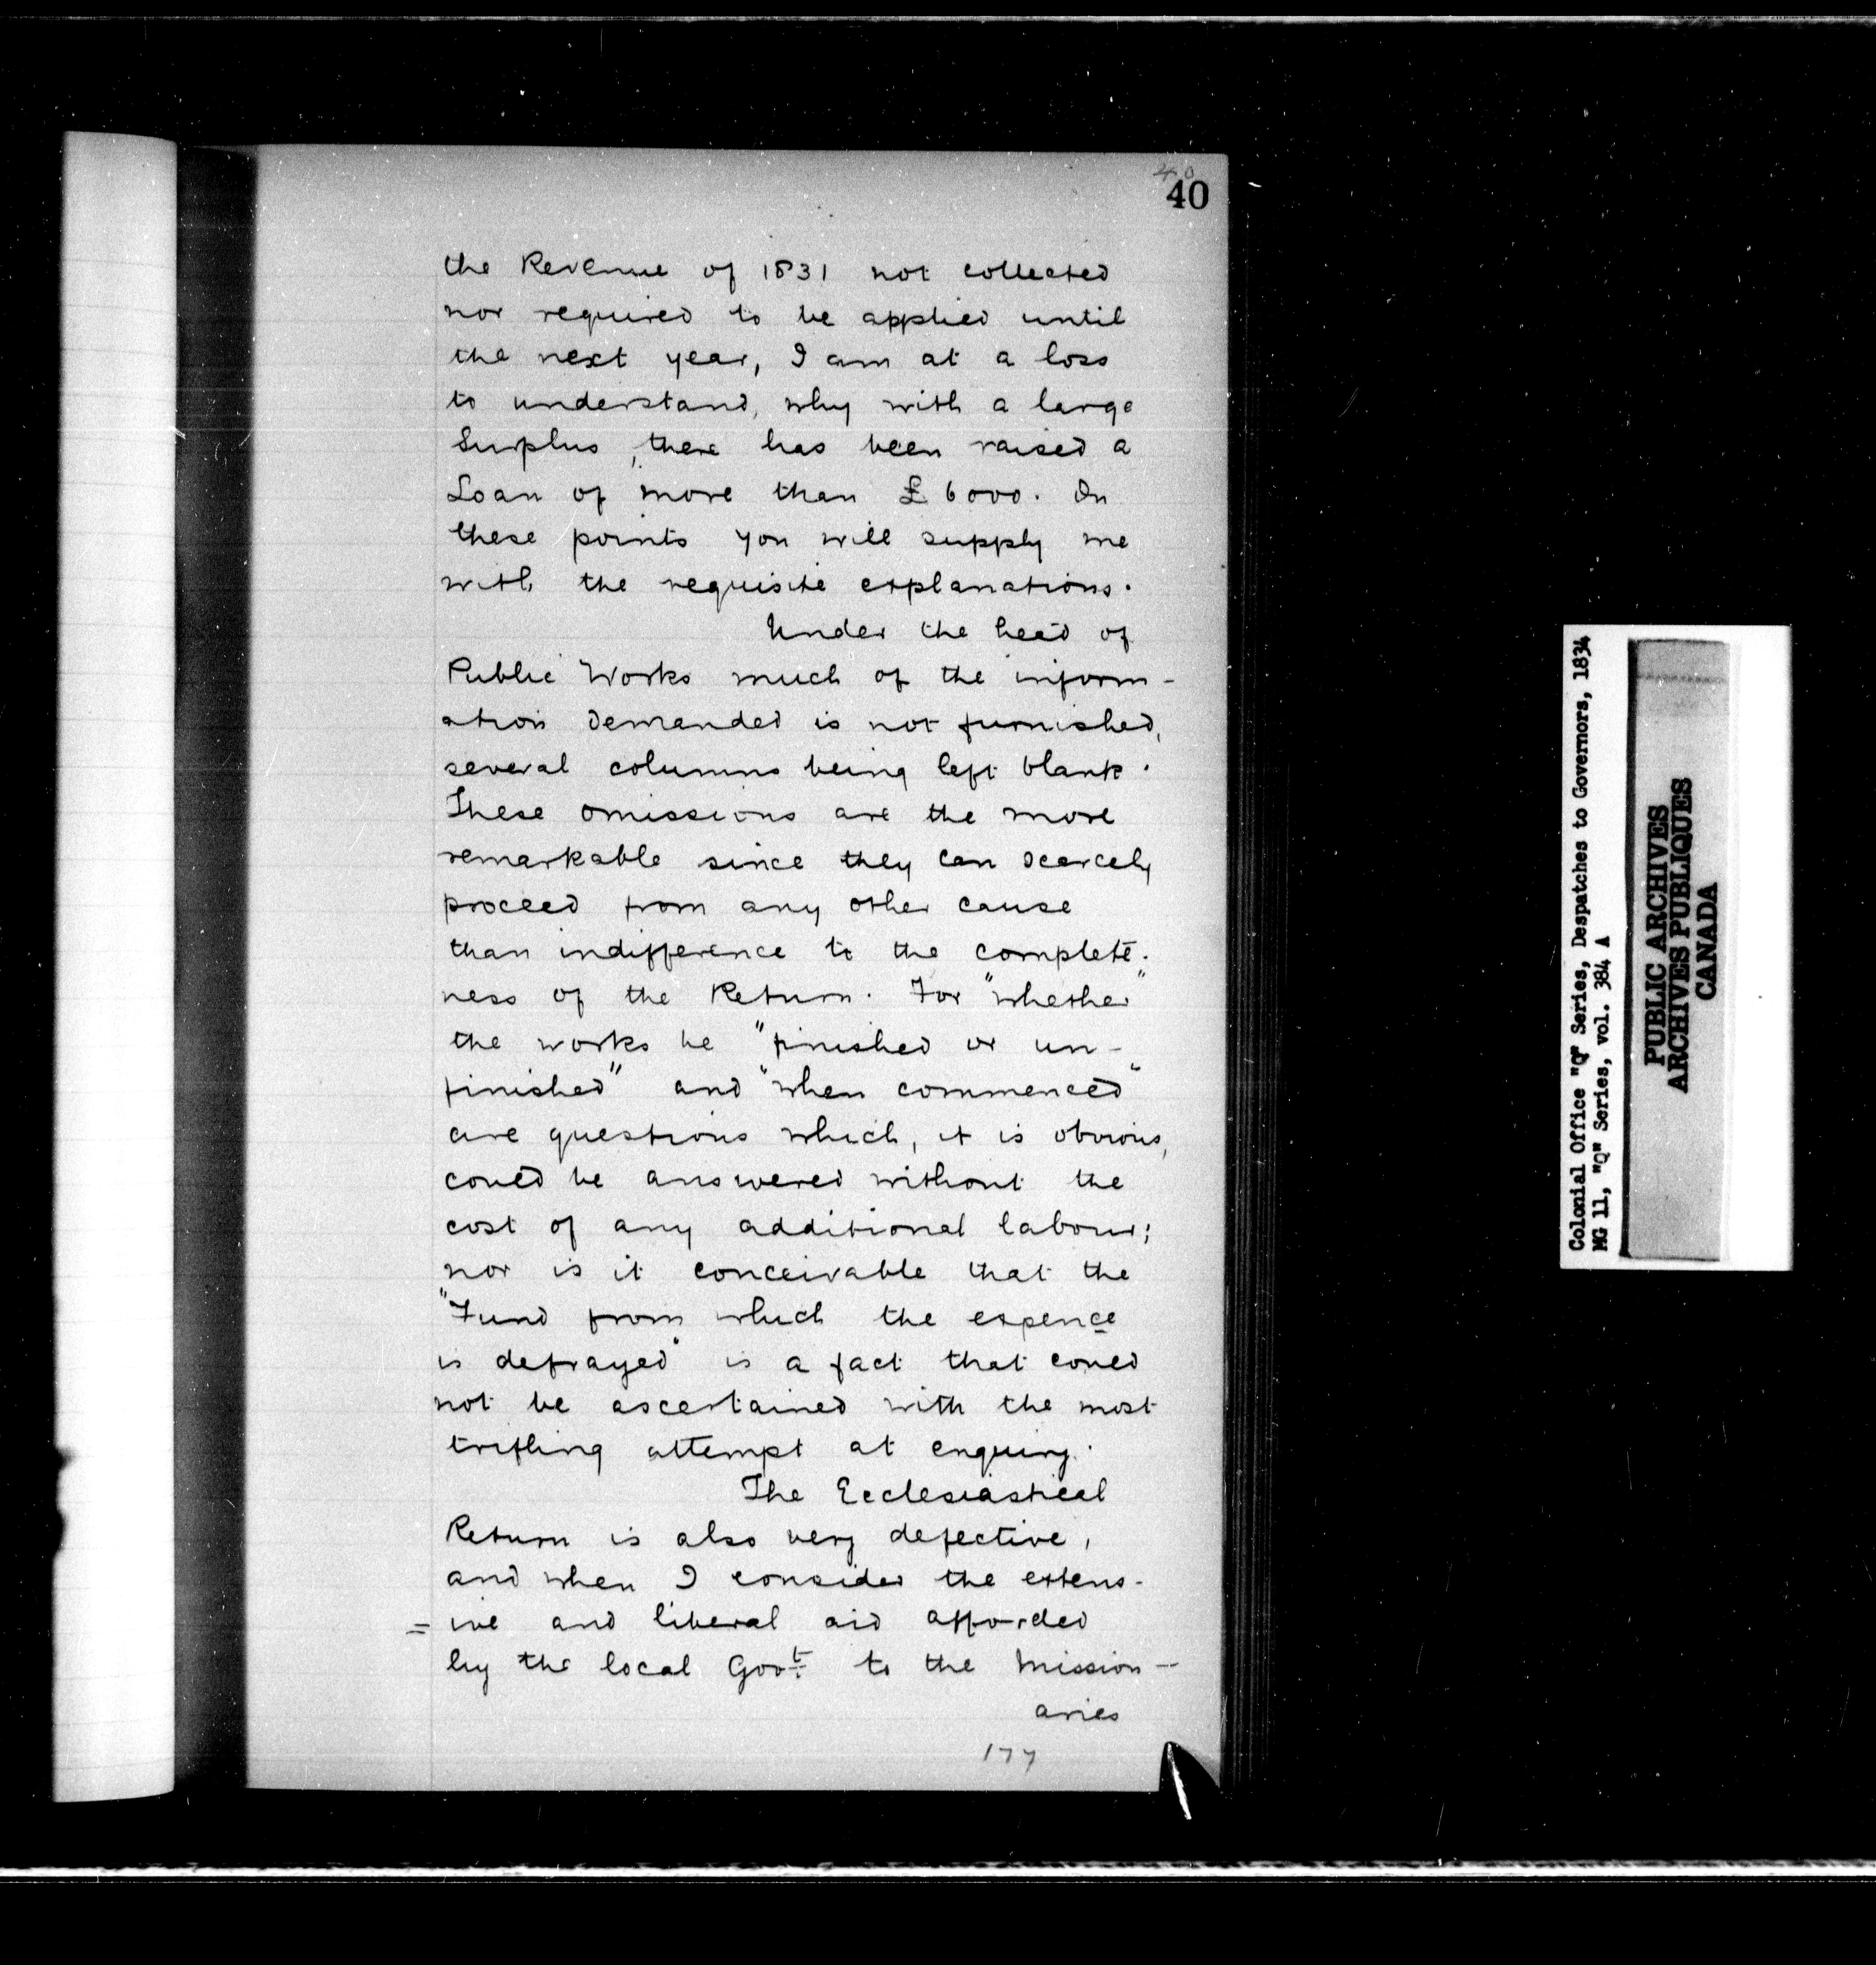 40
40
the Revenue of 1831 not collected
nor required to be applied until
the next year, I am at a loss
to understand, why with a large
Surplus, there has been raised a
Loan of more than £6000. On
these points you will supply me
with the requisite explanations.
Under the head of
Public Works much of the inform-
ation demanded is not furnished,
several columns being left blank.
These omissions are the more
remarkable since they can scarcely
proceed from any other cause
than indifference to the complete-
ness of the Return. For "whether"
the works be "finished or un-
finished" and "when commenced"
are questions which, it is obvious,
could be answered without the
cost of any additional labour;
nor is it conceivable that the
"Fund from which the expence
is defrayed" is a fact that could
not be ascertained with the most
trifling attempt at enquiry.
The Ecclesiastical
Return is also very defective,
and when I consider the extens-
= ive and liberal aid afforded
by the local Govt. to the Mission-
aries
177
Colonial Office "Q" Series, Despatches to Governors, 1834
MG 11, "Q" Series, vol. 384 A
PUBLIC ARCHIVES
ARCHIVES PUBLIQUES
CANADA